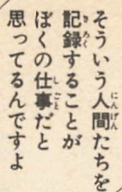 そういう人間たちを
記録することが
ぼくの仕事だと
思ってるんですよ